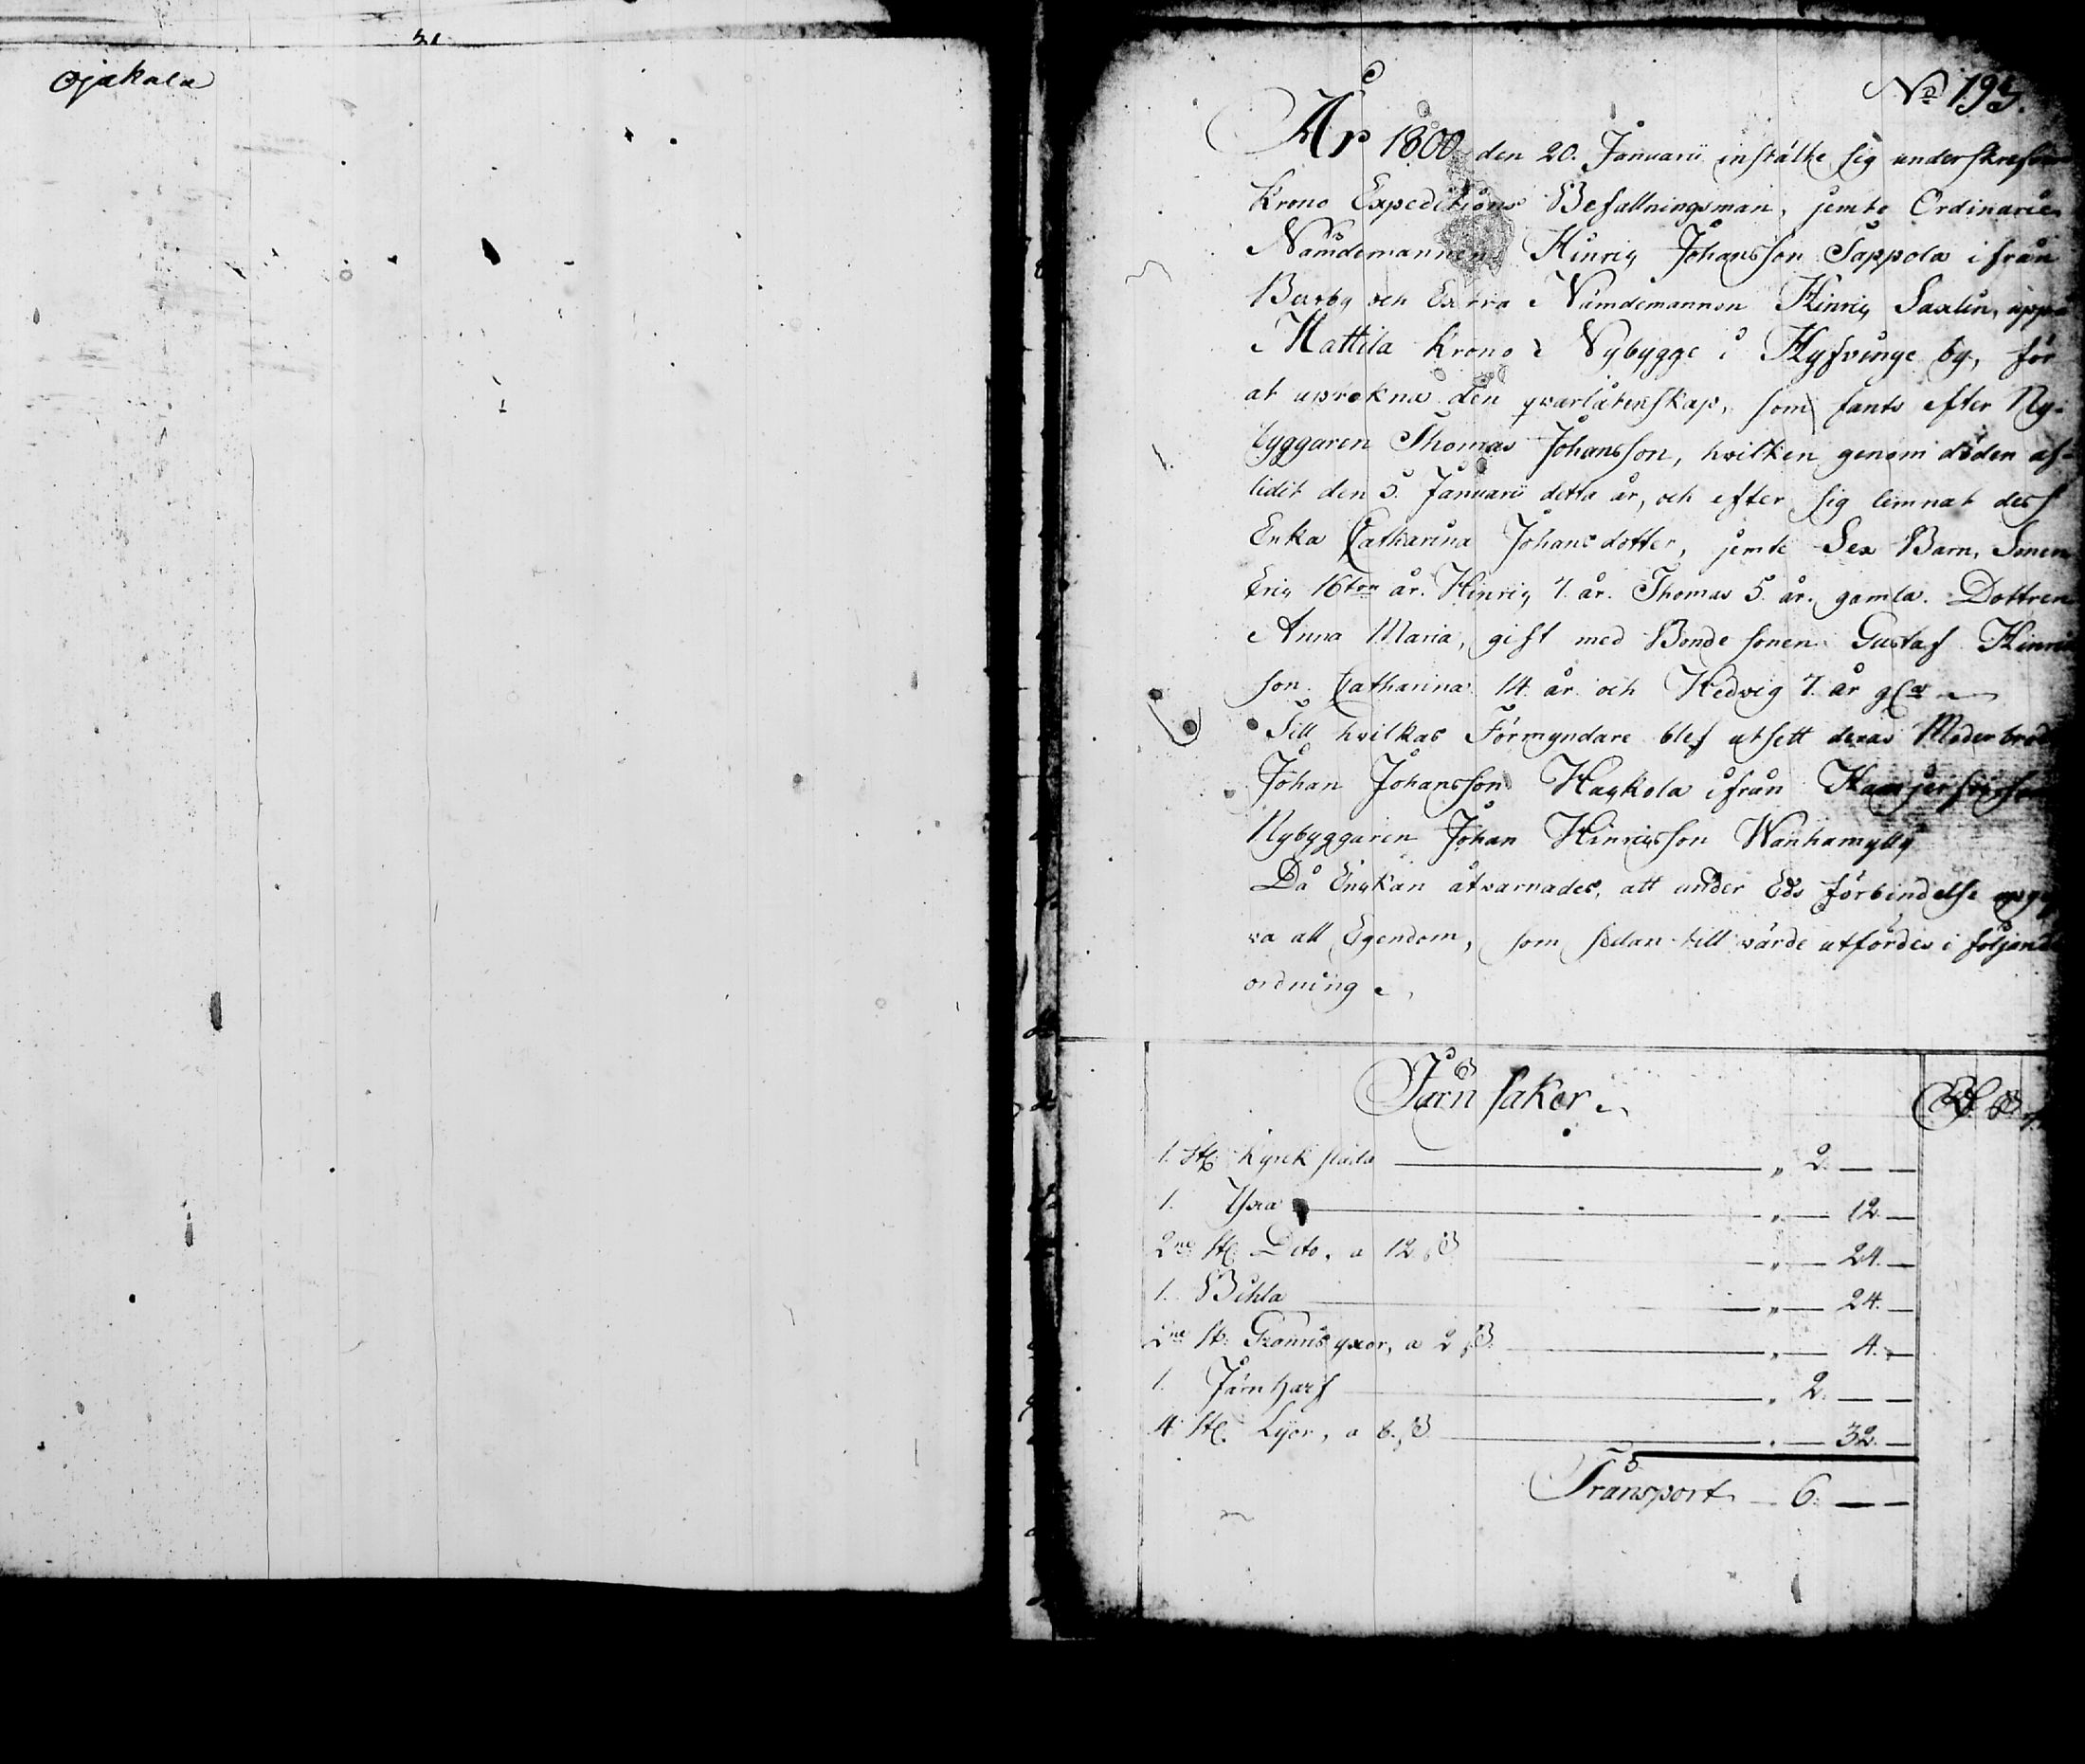 Ojakala
No 195.
År 1800 den 20. Januarii instälte sig underskrefven
Krono Expeditions Befallningsman, jemte Ordinarie
Nämdemannen Hinric Johansson Sappola ifrån
by och Extra Nämdemannen Hinric Saxlin, uppå
Mattila Krono Nybygge i Hyfvinge by, för
at upteknа den qvarlåtenskap, som fants efter Ny-
byggaren Thomas Johansson, hvilken genom döden af-
lidit den 5. Januarii detta år, och efter sig lemnat dess
Enka Catharina Johansdotter, jemte Sex Barn, Sönen
Eric 16ton år. Hinric 7. år. Thomas 5. år. gamla. Dottren
Anna Maria, gift med Bonde sonen Gustaf Hinric
son. Catharina 14. år och Hedvig 7. år
Till hvilkas Förmyndare blef utsett deras Moderbrod
Johan Johansson Hackola ifrån
Nybyggaren Johan Hinricsson Wanhamylly
Då Enckan åtvarnades, att under Eds förbindelse upgif
va all Egendom, som sedan till värde utfördes i följande
ordning
Järn saker
1. st. Kyrck släda " 2. — —
1. Yxa " — 12. —
2ne st. Dito, a 12 ß " — 24. —
1. Bihla " — 24. —
2ne st. yxor, a 2 ß. " — 4. —
1. Järn harf " 2. — —
4. st. Lijor, a 8. ß " — 32. —
Transport — 6. — —